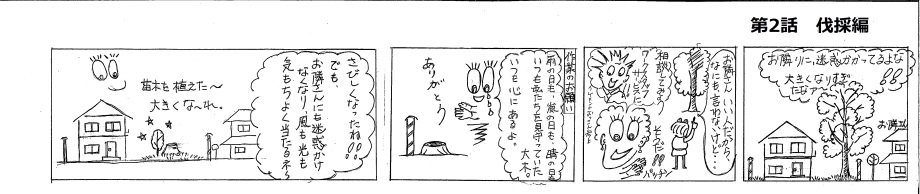 第2話 伐採編
お隣りに、迷惑かかってるよな
大きくなりすぎ
たなァ〜
お隣り
お隣さん いい人だから、
なにも、言わないけど…
相談してみよう
ワークスアップ
サービスに
ピンポン!!
パッチン
作業のお願い
雨の日も、嵐の日も、晴の日
いつも私たちを見守っていた
大木。
いつも心にあるよ。
ありがとう
さびしくなったね!!
でも、
お隣さんにも迷惑かけ
なくなり、風も光も
気もちよく当たるネ
苗木を植えた〜
大きくな〜れ。